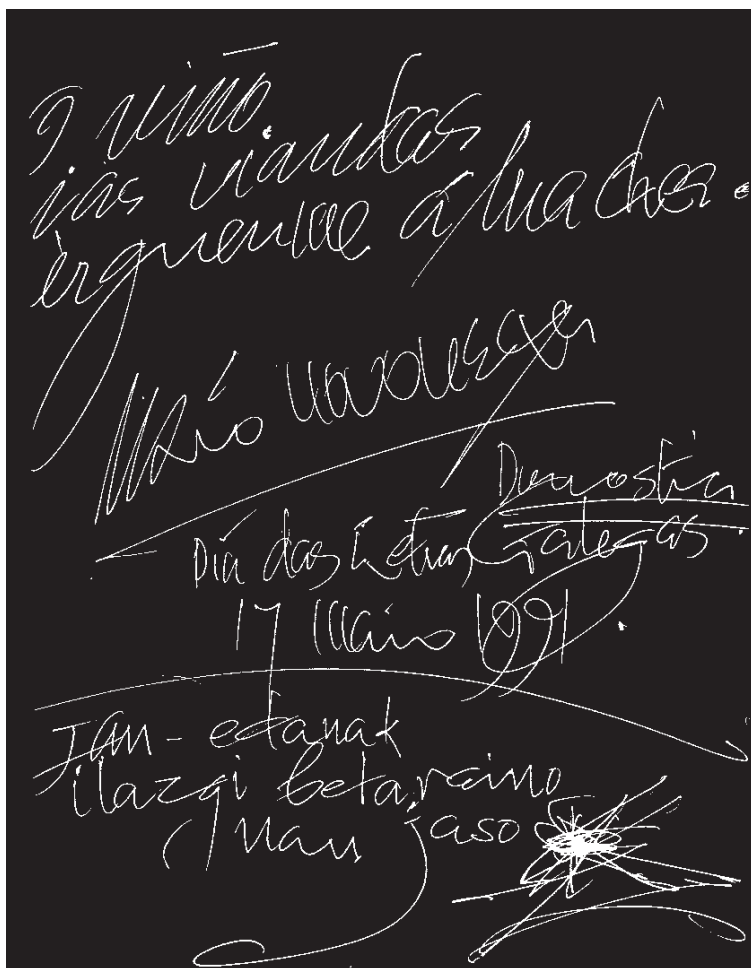 O viño
ias viandas
érguenche á lua chea.
Donostia
Día das Letras Galegas.
17 Maio 1991.
Jan-edanak
ilazgi betaraino
jaso